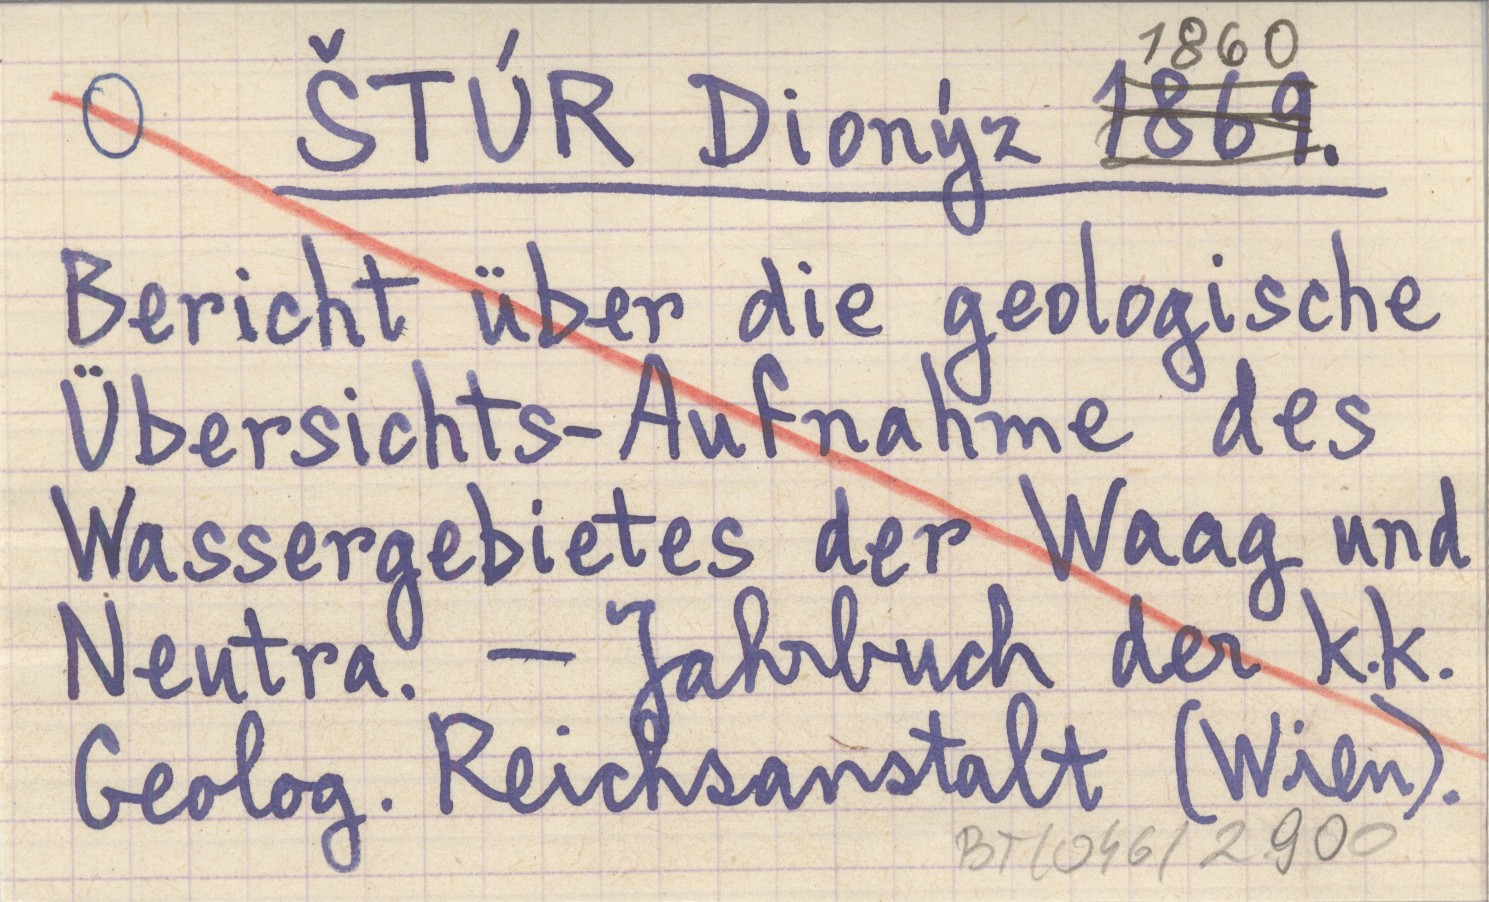 1860
ŠTÚR Dionýz 1869.
Bericht über die geologische
Übersichts-Aufnahme des
Wassergebietes der Waag und
Neutra. — Jahrbuch der k.k.
Geolog. Reichsanstalt (Wien).
BT/046/2900